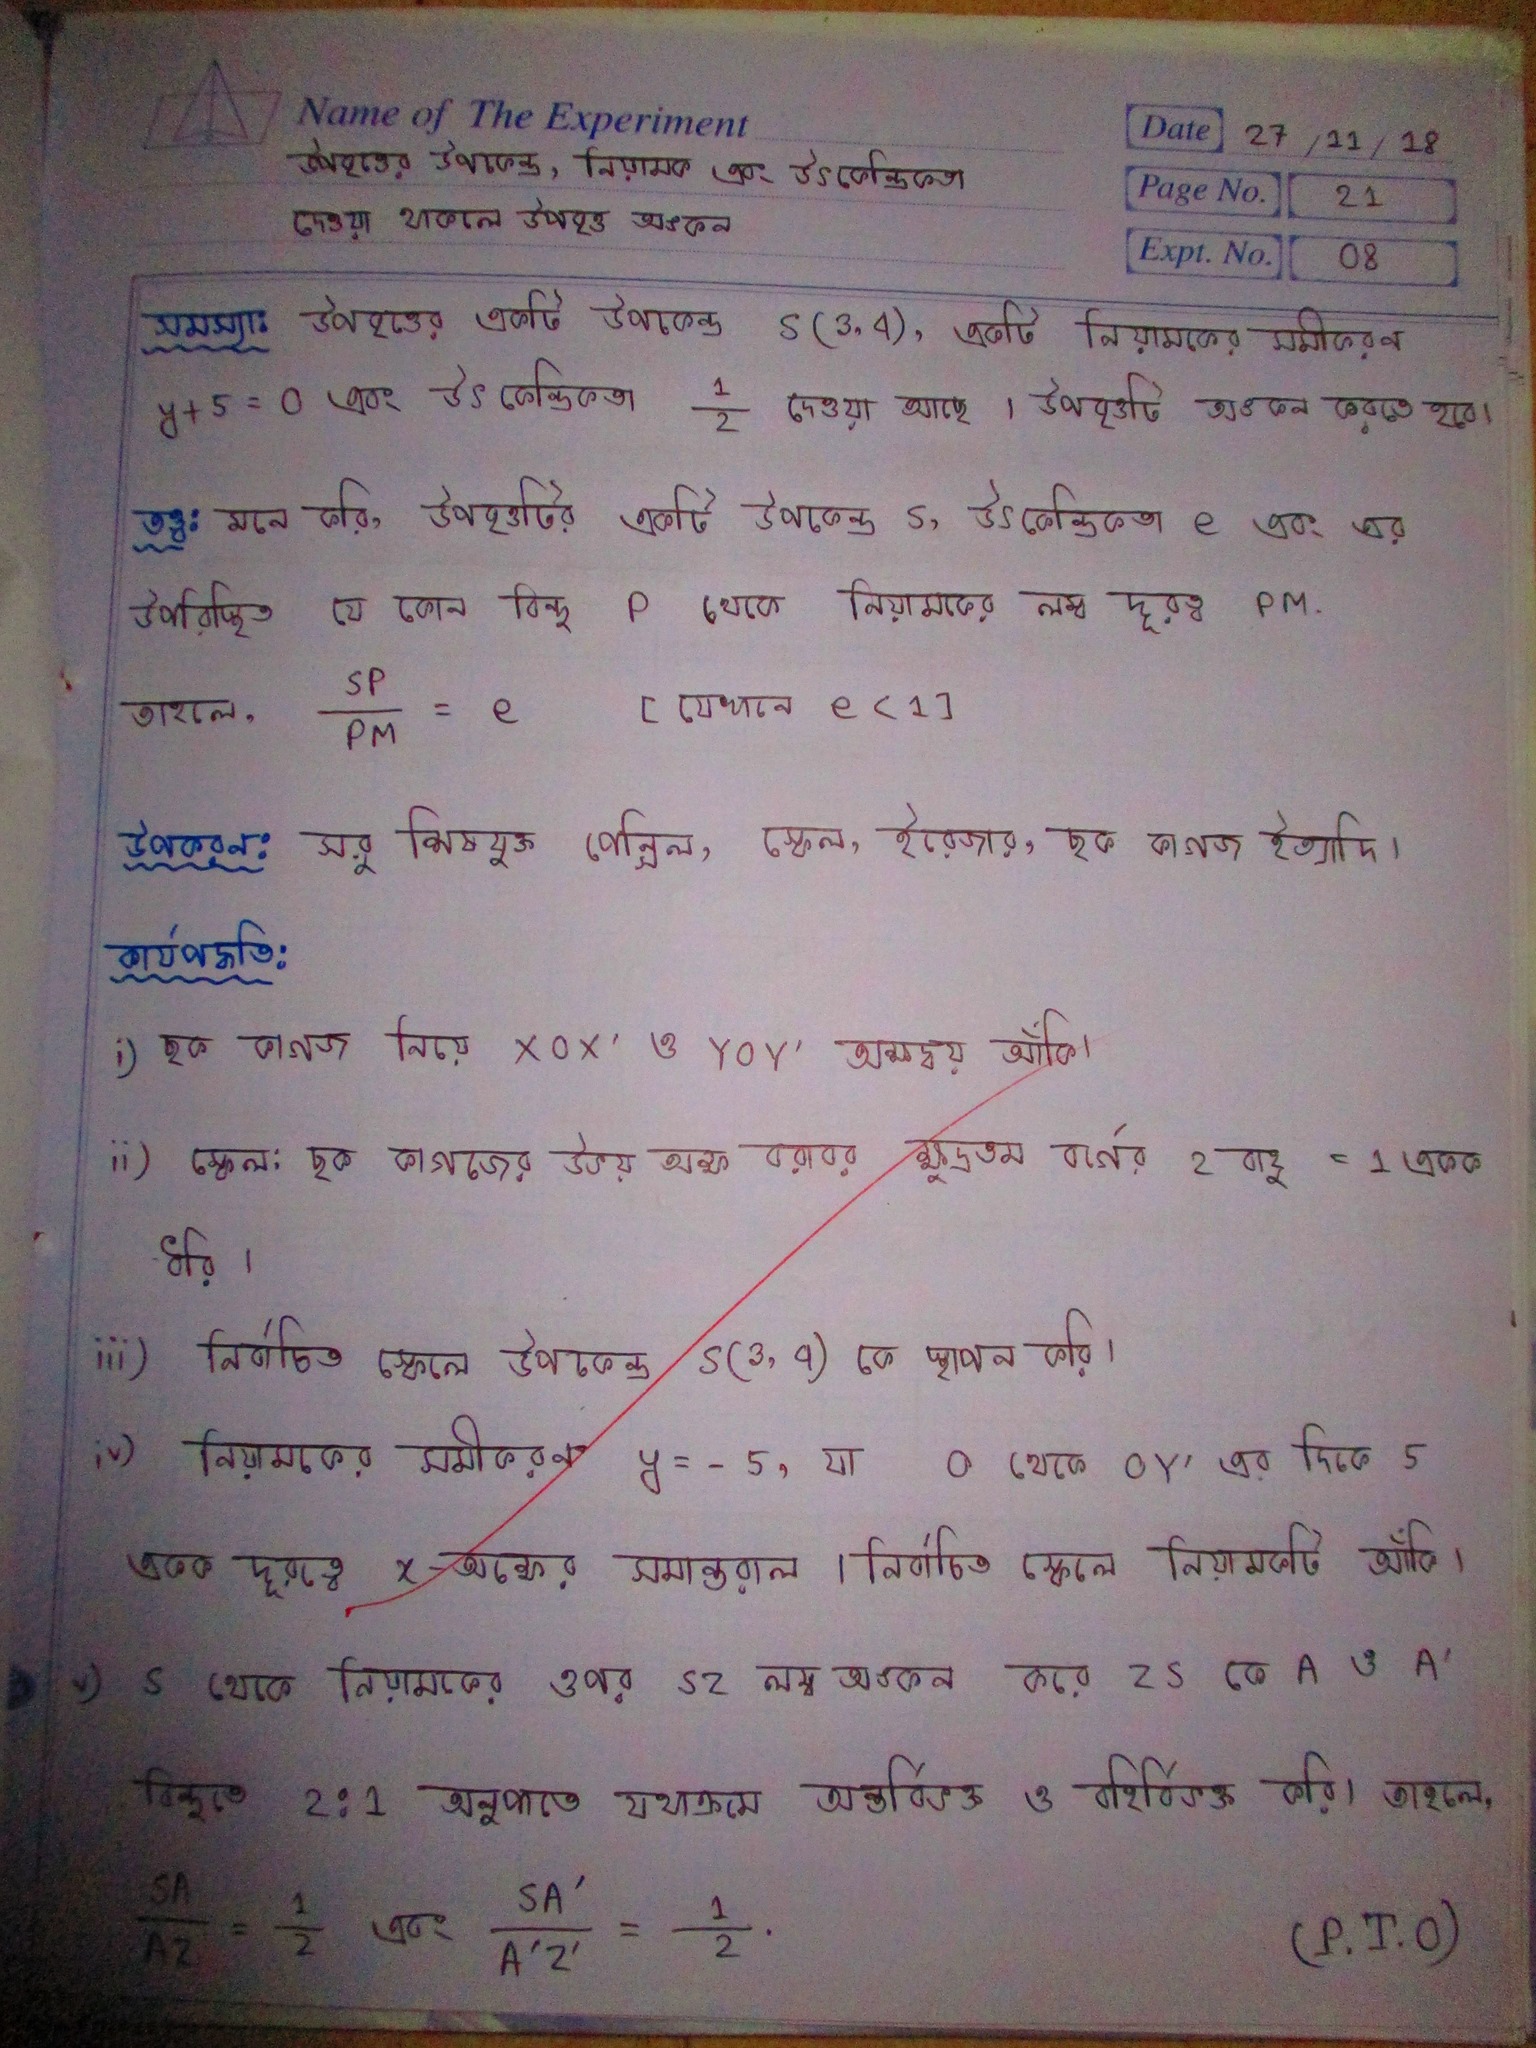 Name of The Experiment
উপবৃত্তের উপকেন্দ্র, নিয়ামক এবং উৎকেন্দ্রিকতা
দেওয়া থাকলে উপবৃত্ত অংকন
Date 27/11/18
Page No. 21
Expt. No. 08
সমস্যা: উপবৃত্তের একটি উপকেন্দ্র S(3, 4), একটি নিয়ামকের সমীকরণ
y+5 = 0 এবং উৎকেন্দ্রিকতা 1/2 দেওয়া আছে। উপবৃত্তটি অংকন করতে হবে।
তত্ত্ব: মনে করি, উপবৃত্তটির একটি উপকেন্দ্র S, উৎকেন্দ্রিকতা e এবং এর
উপরিস্থিত যে কোন বিন্দু P থেকে নিয়ামকের লম্ব দূরত্ব PM.
তাহলে, SP/PM = e [যেখানে e < 1]
উপকরণ: সরু শিষযুক্ত পেন্সিল, স্কেল, ইরেজার, ছক কাগজ ইত্যাদি।
কার্যপদ্ধতি:
i) ছক কাগজ নিয়ে XOX' ও YOY' অক্ষদ্বয় আঁকি।
ii) স্কেল: ছক কাগজের উভয় অক্ষ বরাবর ক্ষুদ্রতম বর্গের 2 বাহু = 1 একক
ধরি।
iii) নির্বাচিত স্কেলে উপকেন্দ্র S(3, 4) কে স্থাপন করি।
iv) নিয়ামকের সমীকরণ y = - 5, যা O থেকে OY' এর দিকে 5
একক দূরত্বে x-অক্ষের সমান্তরাল। নির্বাচিত স্কেলে নিয়ামকটি আঁকি।
v) S থেকে নিয়ামকের ওপর SZ লম্ব অংকন করে ZS কে A ও A'
বিন্দুতে 2:1 অনুপাতে যথাক্রমে অন্তর্বিভক্ত ও বহির্বিভক্ত করি। তাহলে,
SA/AZ = 1/2 এবং SA'/A'Z' = 1/2.
(P.T.O)